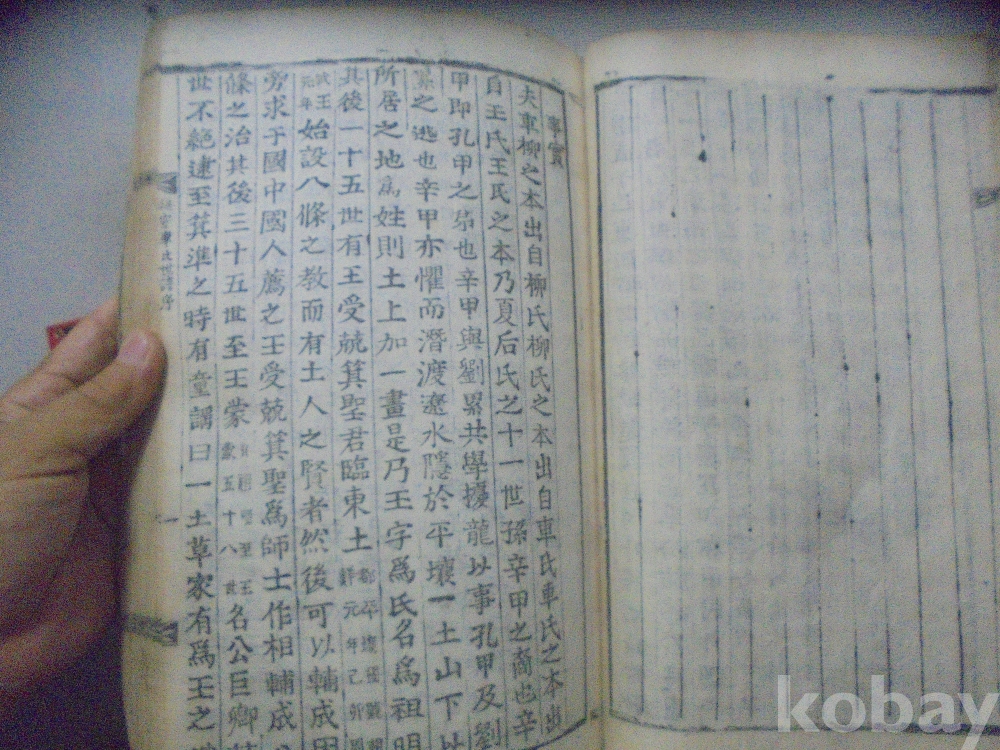 事實
夫車柳之本出自柳氏柳氏之本出自車氏車氏之本出
自王氏王氏之本乃夏后氏之十一世孫辛甲之裔也辛
甲即孔甲之弟也辛甲與劉累共學擾龍以事孔甲及劉
累之逃也辛甲亦懼而潛渡遼水隱於平壤一土山下以
所居之地為姓則土上加一畫是乃王字爲氏名爲祖明
其後一十五世有王受兢箕聖君臨東土
武王元年始設八條之教而有土人之賢者然後可以輔成
旁求于國中國人薦之王受兢箕聖爲師士作相輔成
條之治其後三十五世至王蒙
名公巨卿
世不絕逮至箕準之時有童謠曰一土草家有爲王之
kobay